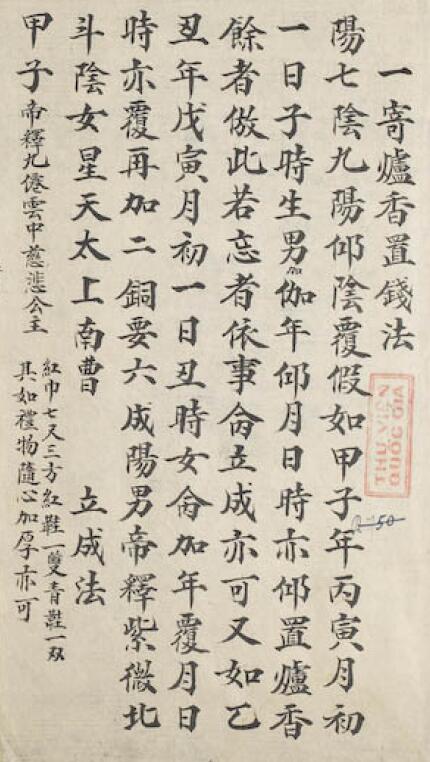 一寄爐香置錢法
陽七陰九陽仰陰覆假如甲子年丙寅月初
一日子時生男加伽年仰月日時亦仰置爐香
餘者倣此若忘者依事侖立成亦可又如乙
丑年戊寅月初一日丑時女侖加年覆月日
時亦覆再加二銅要六成陽男帝釋紫微北
斗陰女星天太上南曹 立成法
甲子帝釋九僊雲中慈悲公主
紅巾七尺三方紅鞋一雙青鞋一双
其如禮物隨心加厚亦可
THƯ VIỆN
QUỐC GIA
50